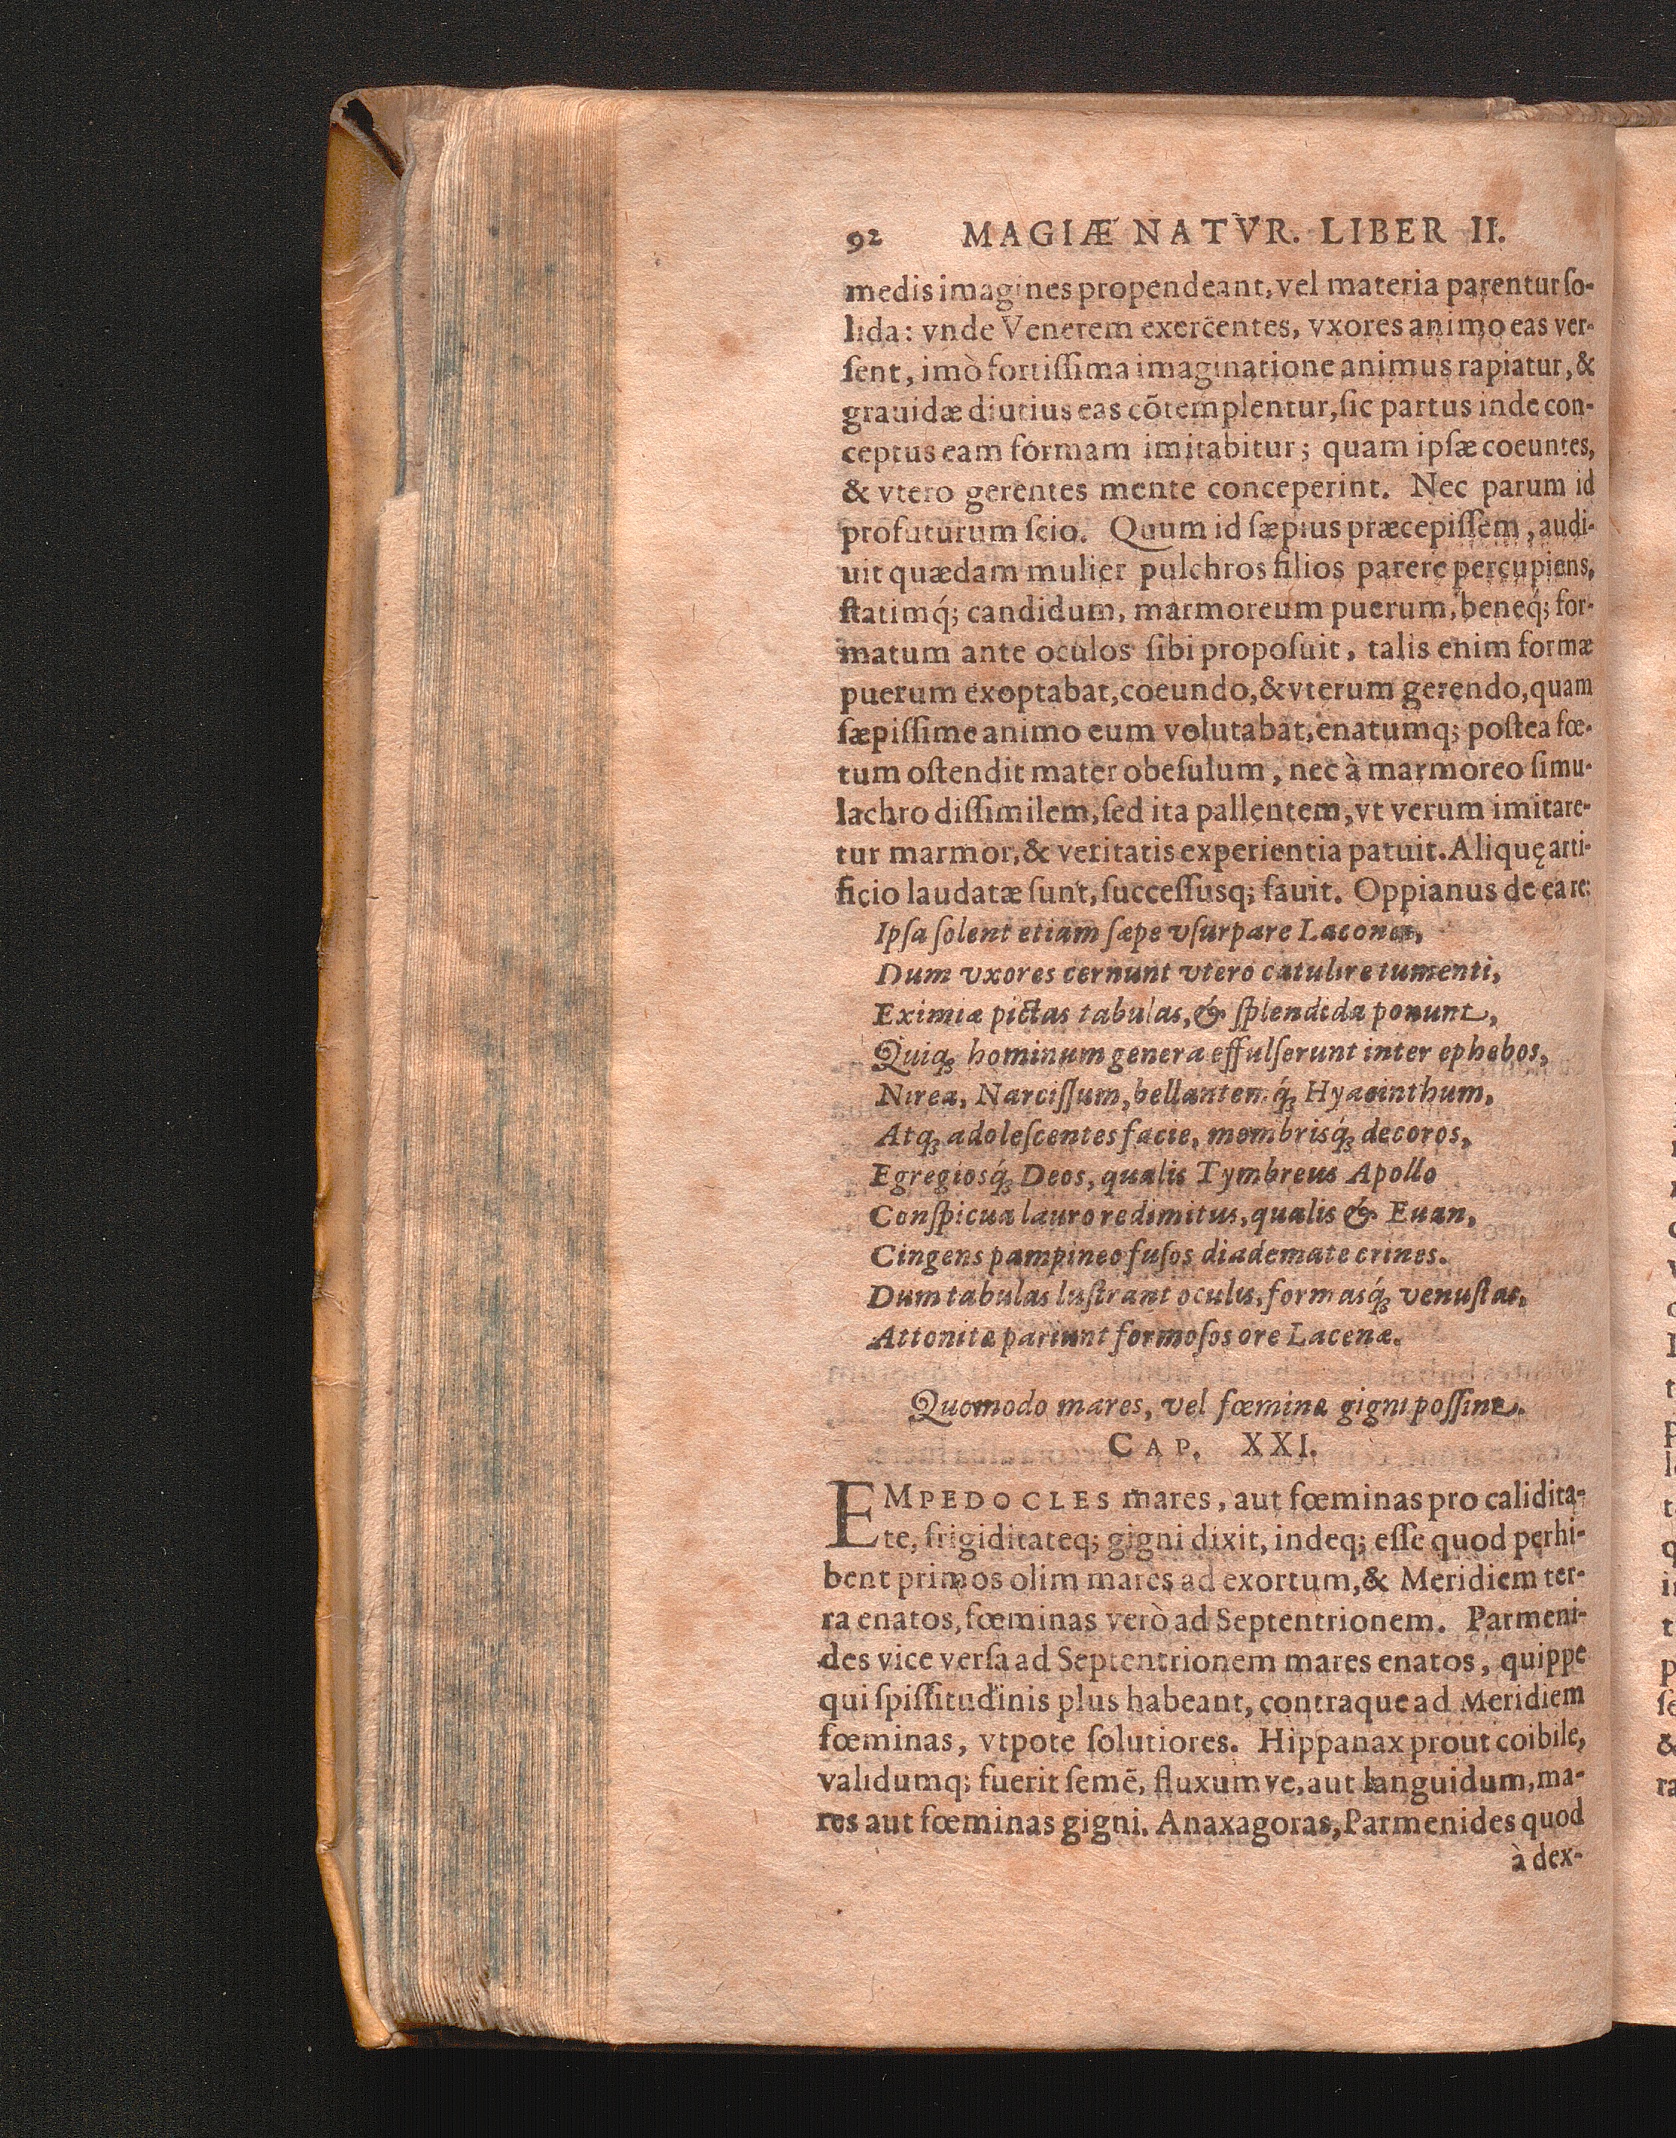 92 MAGIÆ NATVR. LIBER II.
medis imagines propendeant, vel materia parentur ſo-
lida: vnde Venerem exercentes, vxores animo eas ver-
ſent, imò fortiſſima imaginatione animus rapiatur, &
grauidæ diutius eas cõtemplentur, ſic partus inde con-
ceptus eam formam imitabitur; quam ipſæ coeuntes,
& vtero gerentes mente conceperint. Nec parum id
profuturum ſcio. Quum id ſæpius præcepiſſem, audi-
uit quædam mulier pulchros filios parere percupiens,
ſtatimq́; candidum, marmoreum puerum, beneq́; for-
matum ante oculos ſibi propoſuit, talis enim formæ
puerum exoptabat, coeundo, & vterum gerendo, quam
ſæpiſſime animo eum volutabat, enatumq; poſtea fœ-
tum oſtendit mater obeſulum, nec à marmoreo ſimu-
lachro diſſimilem, ſed ita pallentem, vt verum imitare-
tur marmor, & veritatis experientia patuit. Aliquę arti-
ficio laudatæ ſunt, ſucceſſusq; fauit. Oppianus de ea re:
Ipſa ſolent etiam ſæpe vſurpare Lacones,
Dum vxores cernunt vtero catulire tumenti,
Eximiæ pictas tabulas, & ſplendida ponunt,
Quiq; hominum genera effulſerunt inter ephebos,
Nirea, Narciſſum, bellantemq́; Hyacinthum,
Atq; adoleſcentes facie, membrisq́; decoros,
Egregiosq́; Deos, qualis Tymbreus Apollo
Conſpicua lauro redimitus, qualis & Euan,
Cingens pampineo fuſos diademate crines.
Dum tabulas luſtrant oculis, formasq́; venuſtas,
Attonitæ pariunt formoſos ore Lacenæ.
Quomodo mares, vel fœminæ gigni poſſint.
CAP. XXI.
EMPEDOCLES mares, aut fœminas pro calidita-
te, frigiditateq; gigni dixit, indeq; eſſe quod perhi-
bent primos olim mares ad exortum, & Meridiem ter-
ra enatos, fœminas verò ad Septentrionem. Parmeni-
des vice verſa ad Septentrionem mares enatos, quippe
qui ſpiſſitudinis plus habeant, contraque ad Meridiem
fœminas, vtpote ſolutiores. Hippanax prout coibile,
validumq; fuerit ſemē, fluxumve, aut languidum, ma-
res aut fœminas gigni. Anaxagoras, Parmenides quod
à dex-